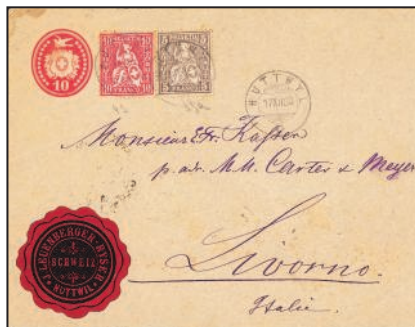 10
10 10
FRANCO
5 5
FRANCO
HUTTWYL
Monsieur Fr. Kaſser
p. adr. M.M. Carter & Meyer
Livorno.
Italie.
J. LEUENBERGER-RYSER
SCHWEIZ
HUTTWIL